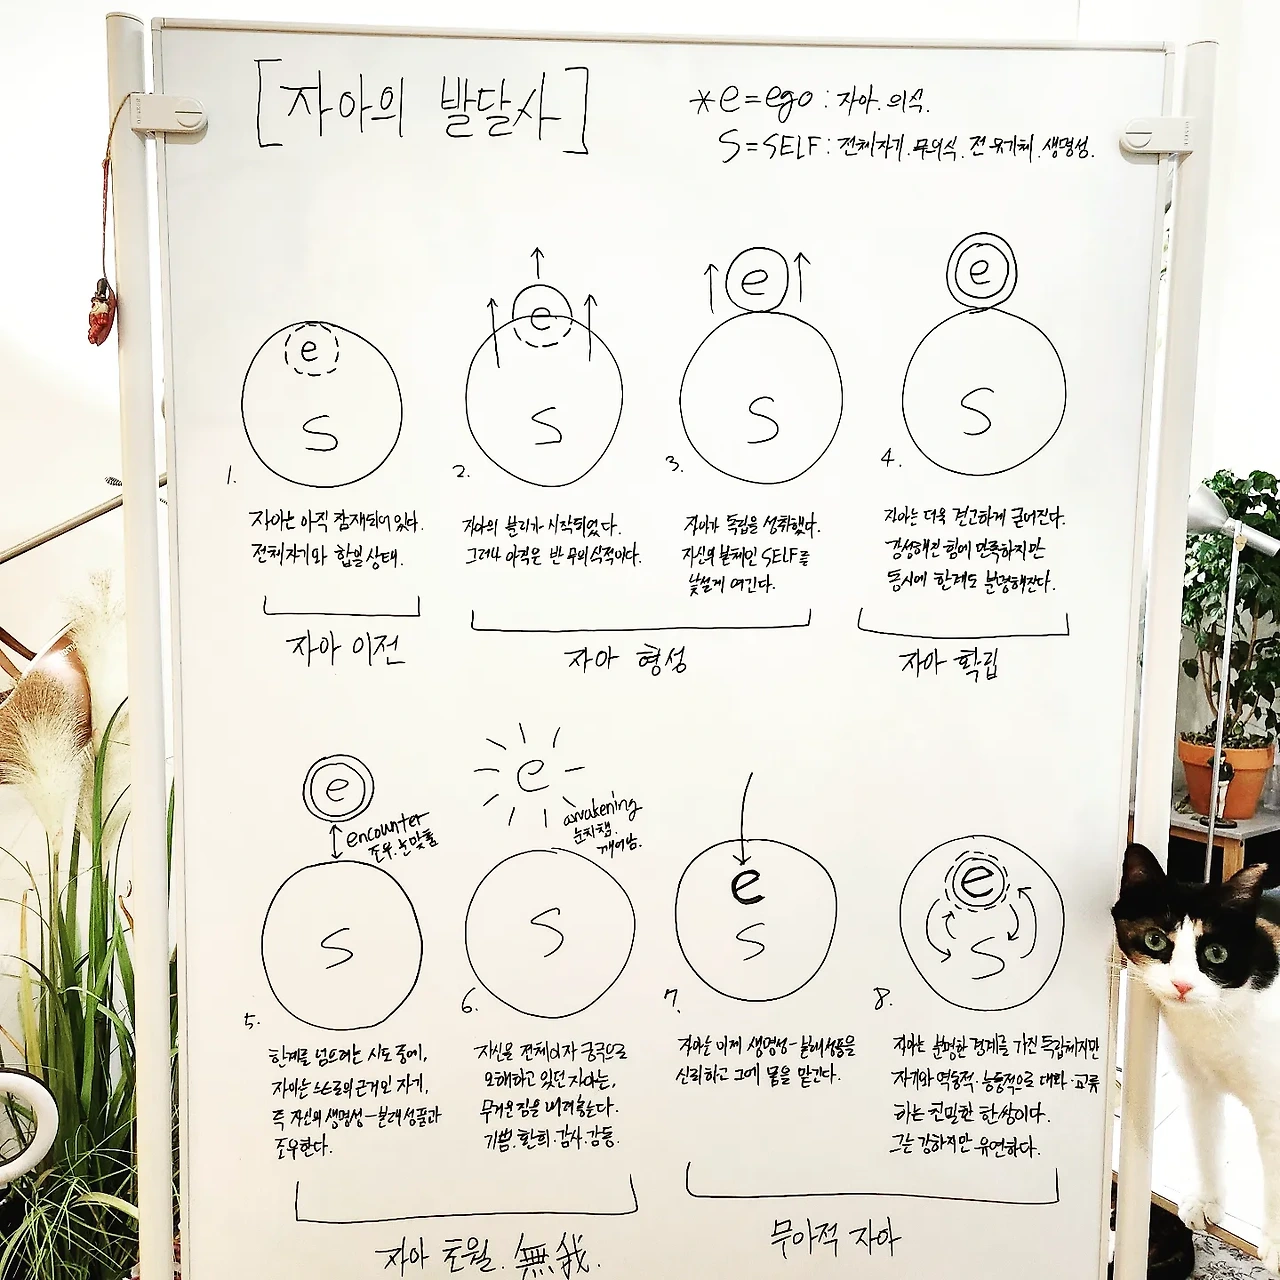 [자아의 발달사]
*e=ego : 자아. 의식.
S=SELF : 전체자기. 무의식. 전 유기체. 생명성.
e
S
1.
자아는 아직 잠재되어 있다.
전체자기와 합일 상태.
자아 이전
e
S
2.
자아의 분리가 시작되었다.
그러나 아직은 반 무의식적이다.
e
S
3.
자아가 독립을 성취했다.
자신의 본체인 SELF를
낯설게 여긴다.
자아 형성
e
S
4.
자아는 더욱 견고하게 굳어진다.
강성해진 힘에 만족하지만
동시에 한계도 분명해진다.
자아 확립
e
encounter
조우. 눈맞춤
S
5.
한계를 넘으려는 시도 중에,
자아는 스스로의 근거인 자기,
즉 자신의 생명성-본래성품과
조우한다.
e
awakening
눈치챔.
깨어남.
S
6.
자신을 전체이자 궁극으로
오해하고 있던 자아는,
무거운 짐을 내려놓는다.
기쁨. 환희. 감사. 감동.
자아 초월. 無我.
e
S
7.
자아는 이제 생명성-본래성품을
신뢰하고 그에 몸을 맡긴다.
e
S
8.
자아는 분명한 경계를 가진 독립체지만
자기와 역동적. 능동적으로 대화. 교류
하는 친밀한 한쌍이다.
그는 강하지만 유연하다.
무아적 자아